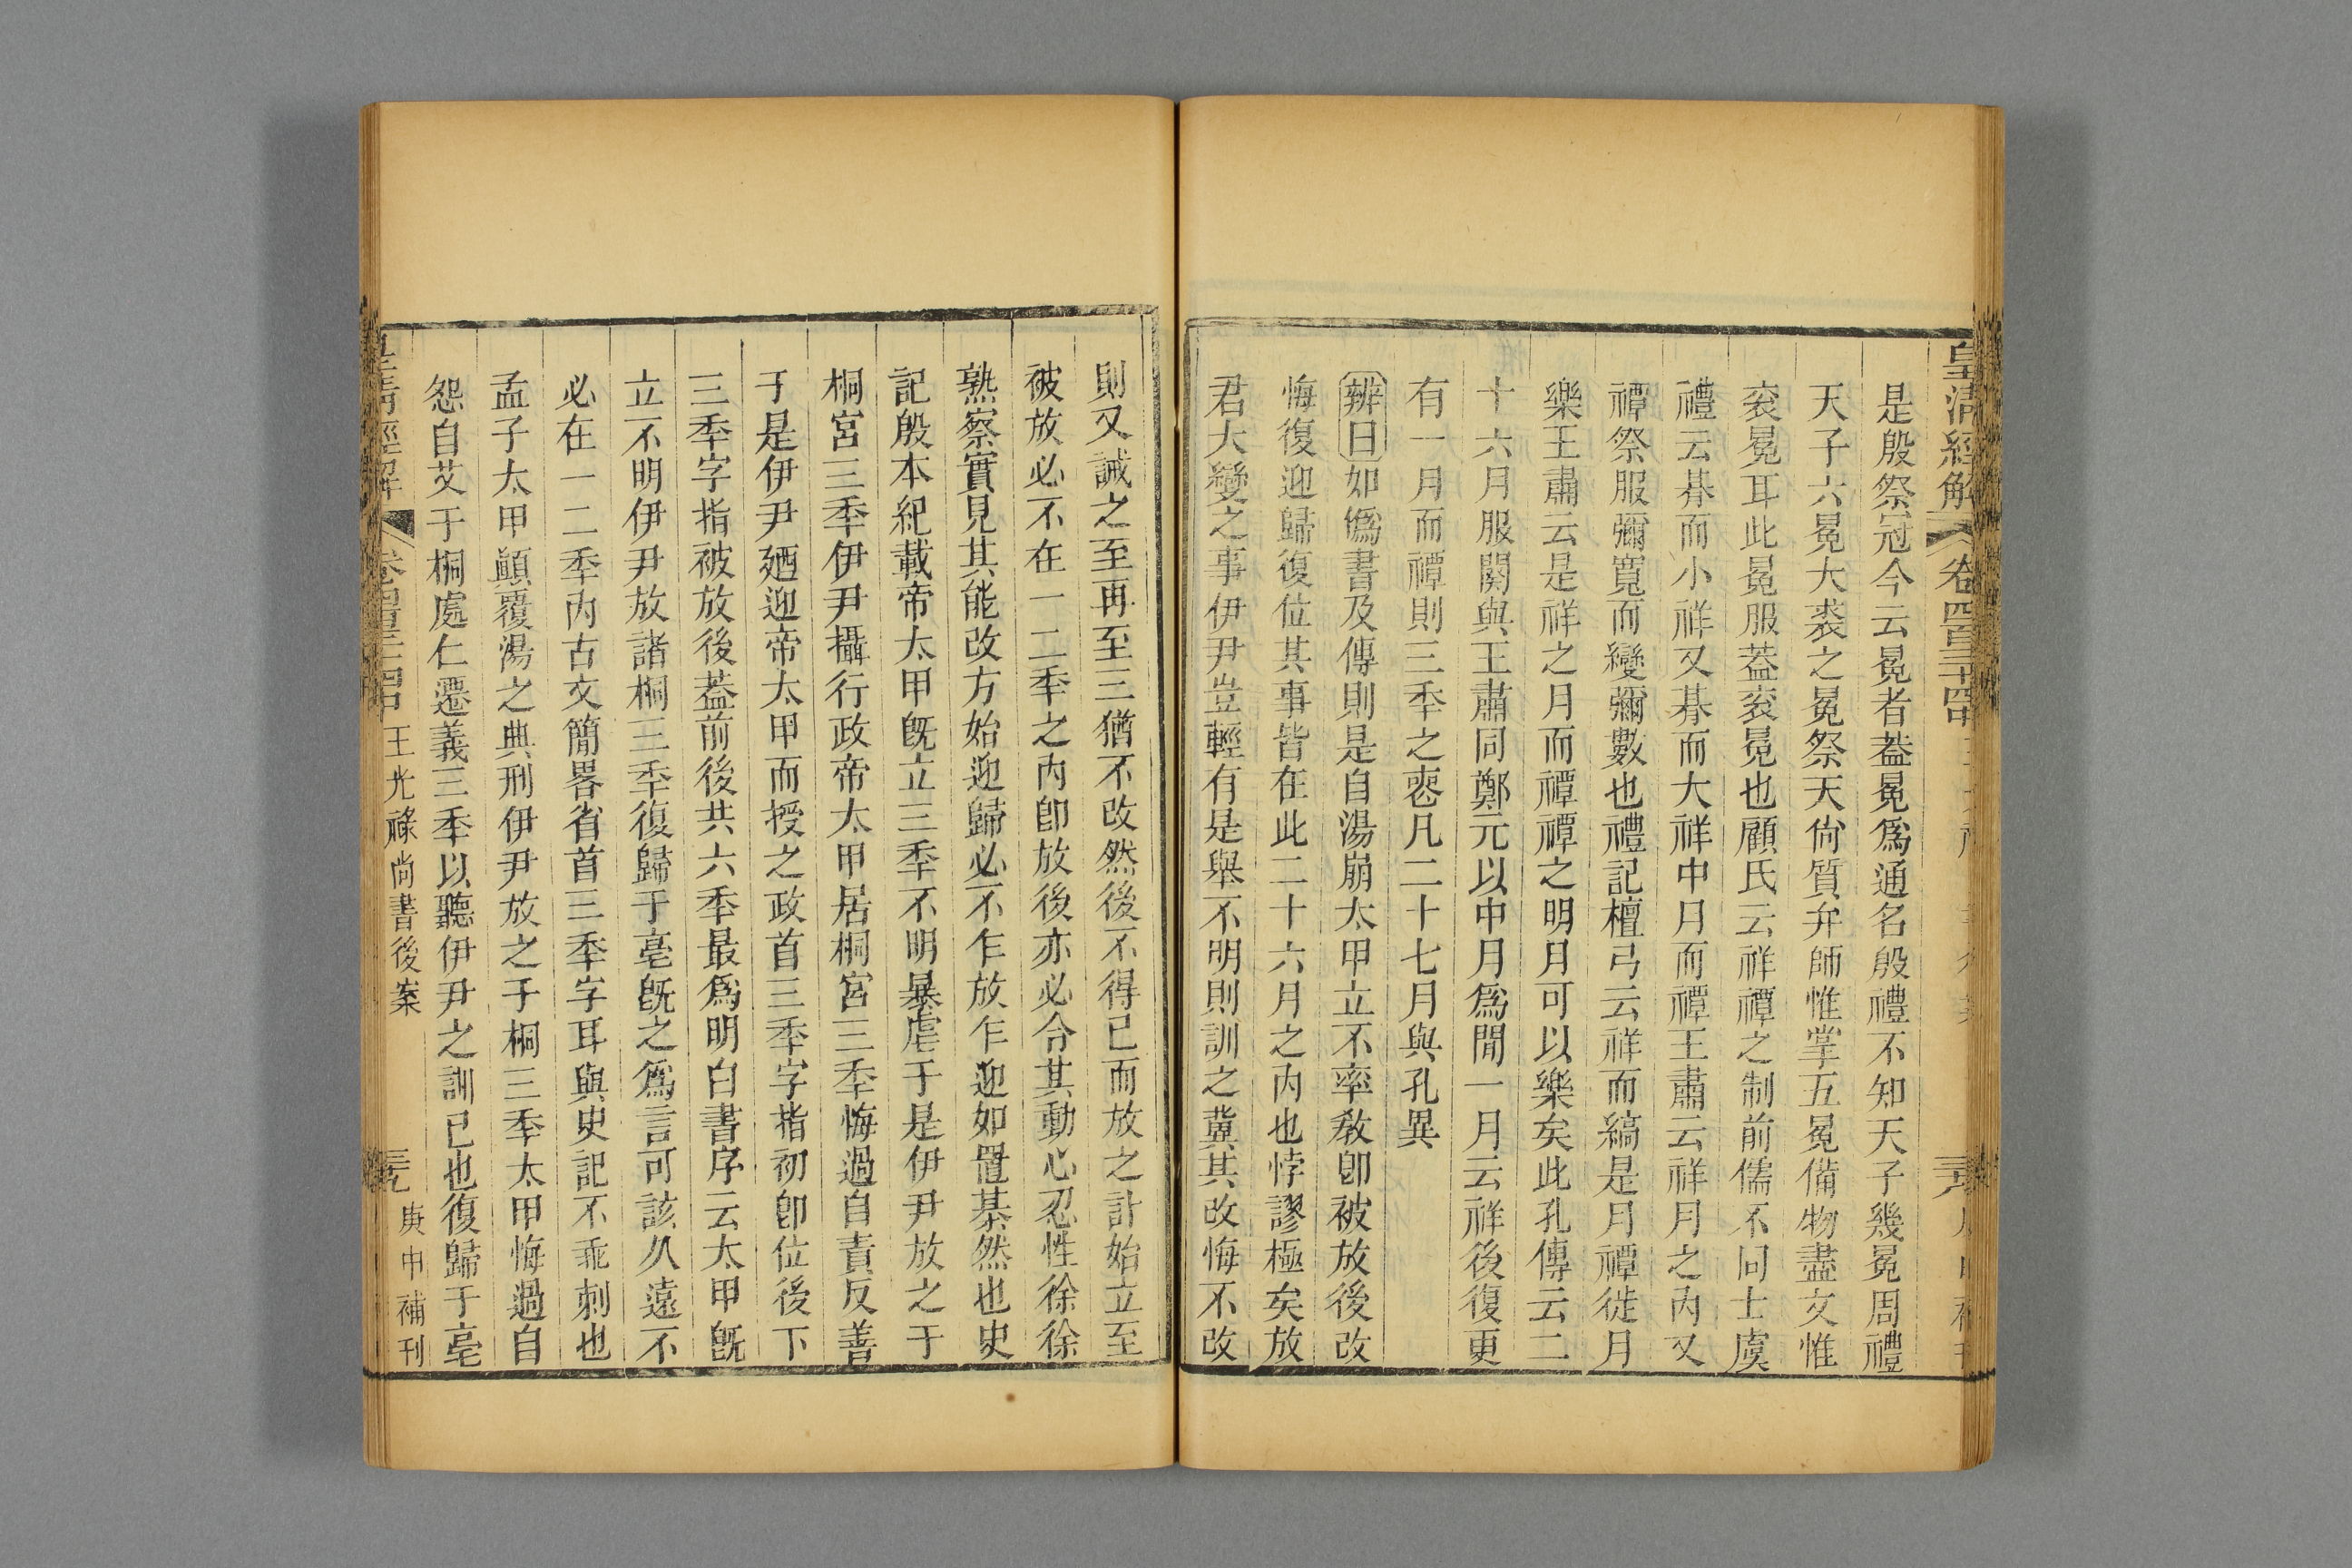 皇清經解
卷四百三十四
是殷祭冠今云冕者葢冕爲通名殷禮不知天子幾冕周禮
天子六冕大裘之冕祭天尙質弁師惟掌五冕備物盡文惟
袞冕耳此冕服葢袞冕也顧氏云祥禫之制前儒不同士虞
禮云朞而小祥又朞而大祥中月而禫王肅云祥月之內又
禫祭服彌寬而變彌數也禮記檀弓云祥而縞是月禫徙月
樂王肅云是祥之月而禫禫之明月可以樂矣此孔傳云二
十六月服闋與王肅同鄭元以中月爲閒一月云祥後復更
有一月而禫則三秊之喪凡二十七月與孔異
辨曰如僞書及傳則是自湯崩太甲立不率敎卽被放後改
悔復迎歸復位其事皆在此二十六月之內也悖謬極矣放
君大變之事伊尹豈輕有是舉不明則訓之冀其改悔不改
則又誡之至再至三猶不改然後不得已而放之計始立至
被放必不在一二秊之內卽放後亦必令其動心忍性徐徐
熟察實見其能改方始迎歸必不乍放乍迎如置棊然也史
記殷本紀載帝太甲旣立三秊不明暴虐于是伊尹放之于
桐宮三秊伊尹攝行政帝太甲居桐宮三秊悔過自責反善
于是伊尹廼迎帝太甲而授之政首三秊字指初卽位後下
三秊字指被放後葢前後共六秊最爲明白書序云太甲旣
立不明伊尹放諸桐三秊復歸于亳旣之爲言可該久遠不
必在一二秊內古文簡畧省首三秊字耳與史記不乖刺也
孟子太甲顚覆湯之典刑伊尹放之于桐三秊太甲悔過自
怨自艾于桐處仁遷義三秊以聽伊尹之訓已也復歸于亳
皇清經解
卷四百三十四
王光祿尙書後案
庚申補刊